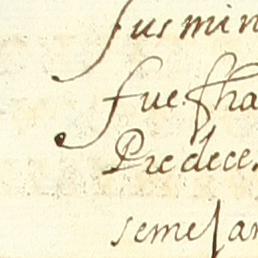 sus min
fue. sha
Predece
semejan